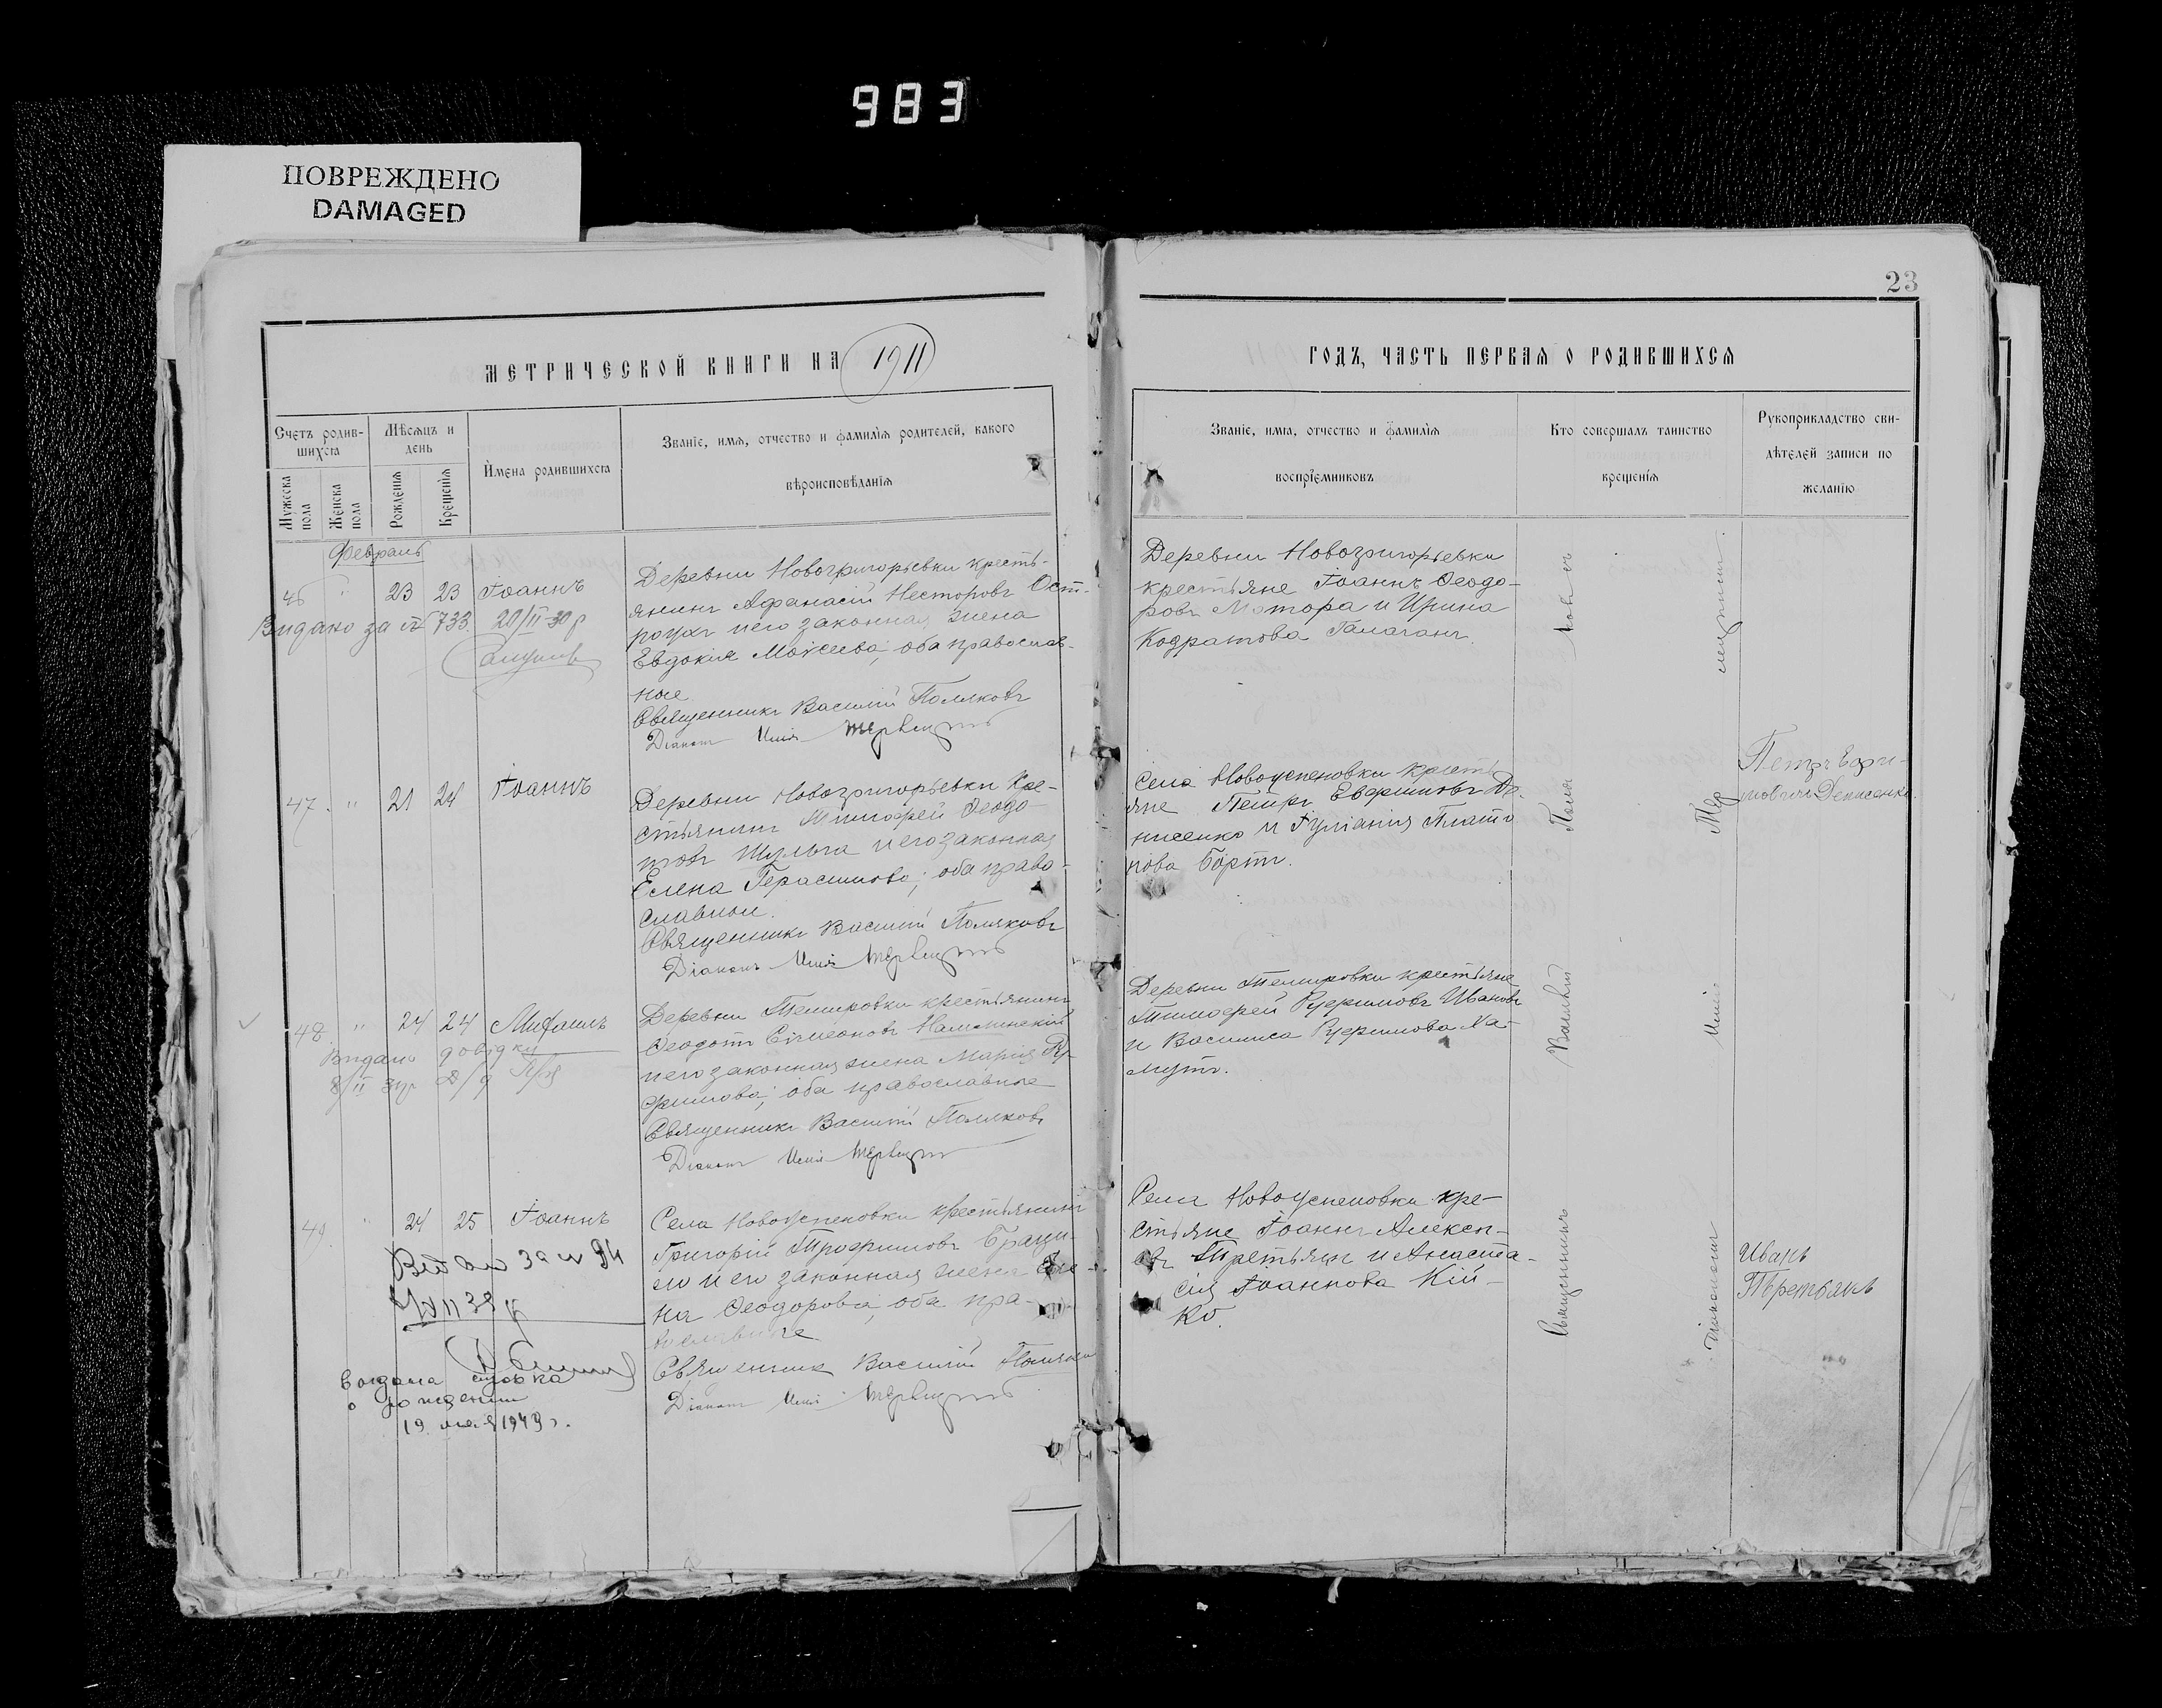 983
ПОВРЕЖДЕНО
DAMAGED
23
МЕТРИЧЕСКОЙ КНИГИ НА 1911
ГОДЪ, ЧАСТЬ ПЕРВАЯ О РОДИВШИХСЯ
Счетъ родив-
шихся
Мужеска пола
Женска пола
Мѣсяцъ и
день
Рожденія
Крещенія
Имена родившихся
Званіе, имя, отчество и фамилія родителей, какого
вѣроисповѣданія
Званіе, имя, отчество и фамилія
воспріемниковъ
Кто совершалъ таинство
крещенія
Рукоприкладство сви-
дѣтелей записи по
желанію
Февраль
46 " 23 23 Іоаннъ
Видано за № 733. 20/II-30 р
Деревни Новогригорьевки кресть-
янинъ Афанасій Несторовъ Ост-
роухъ и его законная жена
Евдокія Моисеева, оба православ-
ные
Священникъ Василій Поляковъ
Діаконъ Илія
Деревни Новогригорьевки
крестьяне Іоаннъ Ѳеодо-
ровъ Мотора и Ирина
Кодратова Галаганъ.
47. " 21 24 Іоаннъ
Деревни Новогригорьевки Кре-
стьянинъ Тимофей Ѳеодо
товъ Шульга и его законная
Елена Герасимова, оба право-
славные.
Священникъ Василій Поляковъ
Діаконъ Илія
Села Новоуспеновки кресть
яне Петръ Евфимовъ Де-
нисенко и Іуліанія Плато
нова Бортъ.
Петръ Ефи-
мовичъ Денисенко.
48. " 24 24 Михаилъ
Видано довідку
8/II
Деревни Темировки крестьянинъ
Ѳеодотъ Симеоновъ
и его законная жена Марія Ру-
фимова, оба православные
Священникъ Василій Поляковъ
Діаконъ Илія
Деревни Темировки крестьяне
Тимофей Руфимовъ Ивановъ
и Василиса Руфимова Ха-
мутъ.
49. " 24 25 Іоаннъ
Села Новоуспеновки крестьянинъ
Григорій Трофимовъ
ло и его законная жена Еле-
на Ѳеодорова, оба пра-
вославные
Священник Василій Поляковъ
Діаконъ Илія
Села Новоуспеновки кре-
стьяне Іоаннъ Алексе-
евъ Третьякъ и Анаста-
сія Іоаннова Кій-
ко.
Иванъ
Третьякъ
Выдана справка
о рождении
19 мая 1949 г.
Священникъ Василій Поляковъ
Діаконъ Илія